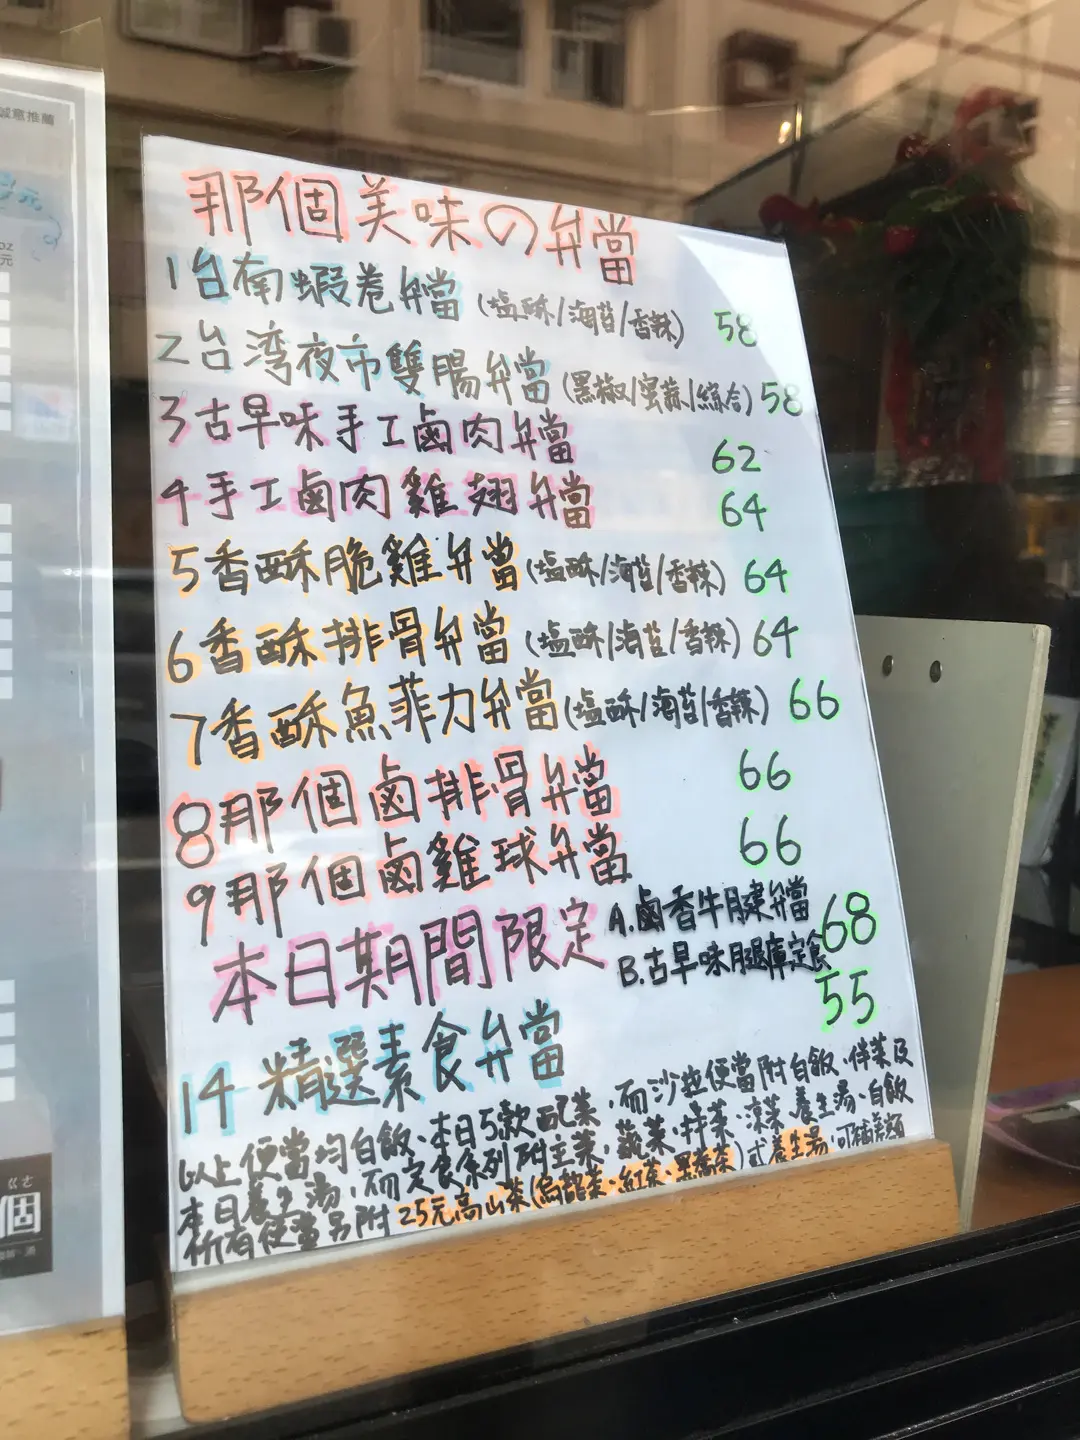 誠意推薦
元
oz
元
ㄍㄜ
個
那個美味の弁當
1台南蝦卷弁當 (塩酥/海苔/香辣) 58
2台湾夜市雙腸弁當 (黑椒/蜜蒜/綜合) 58
3古早味手工鹵肉弁當 62
4手工鹵肉雞翅弁當 64
5香酥脆雞弁當 (塩酥/海苔/香辣) 64
6香酥排骨弁當 (塩酥/海苔/香辣) 64
7香酥魚菲力弁當 (塩酥/海苔/香辣) 66
8那個鹵排骨弁當 66
9那個鹵雞球弁當 66
本日期間限定 A.鹵香牛腱弁當 68
B.古早味腿庫定食
14 精選素食弁當 55
以上便當均白飯、本日5款配菜,而沙拉便當附白飯、伴菜及
本日養生湯,而定食系列附主菜,蔬菜、拌菜、涼菜、養生湯、白飯
所有便當另附25元高山茶(烏龍茶、紅茶、黑喬茶)或養生湯,可補差額